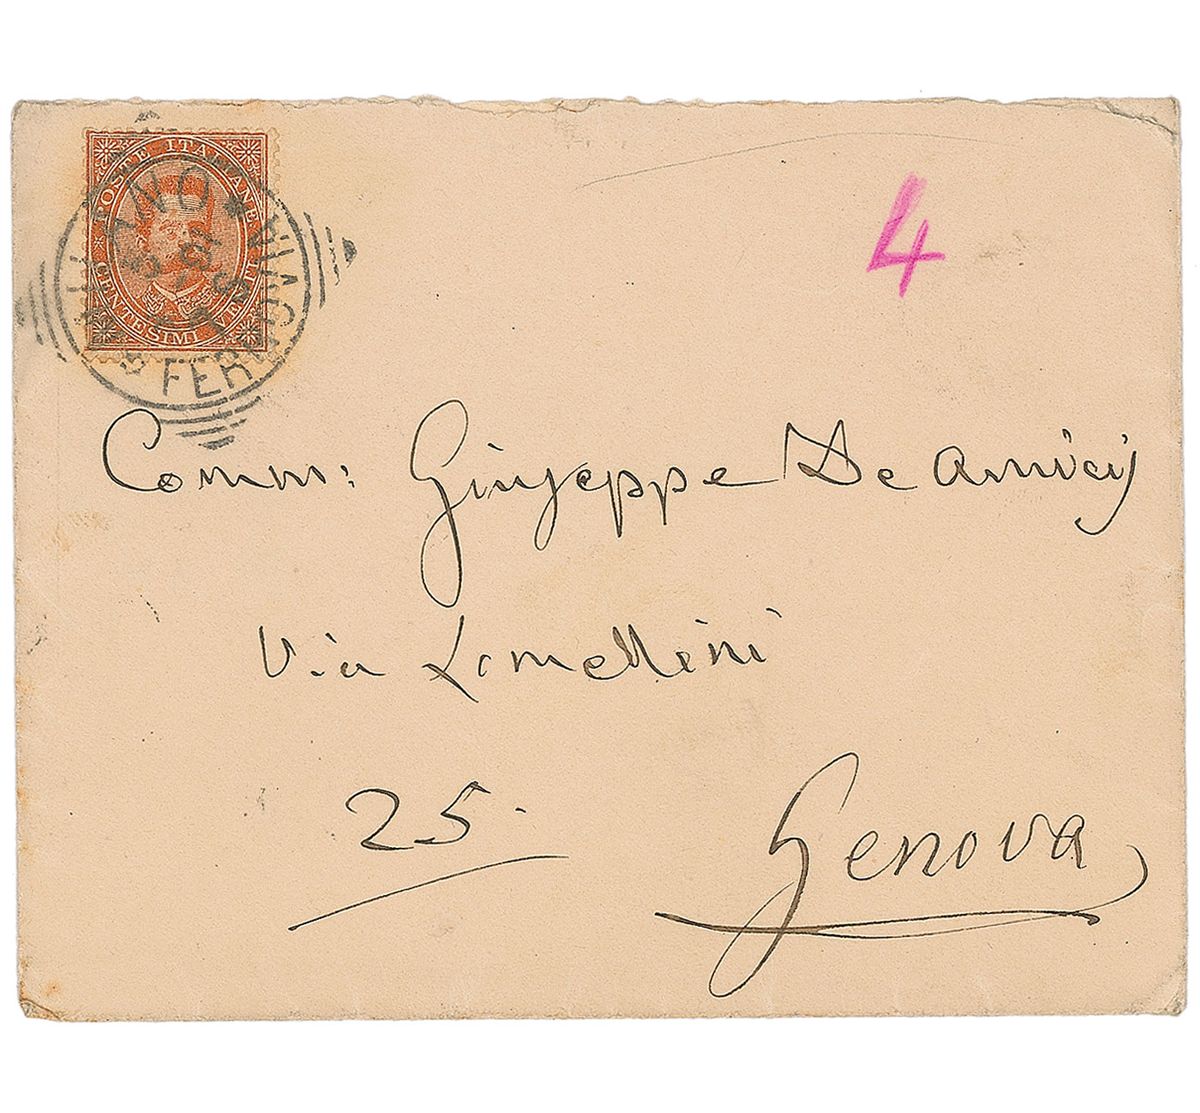 POSTE ITALIANE
CENTESIMI VENTI
MILANO
FERROVIA
4
Comm: Giuseppe De Amicis
Via Lomellini
25.
Genova